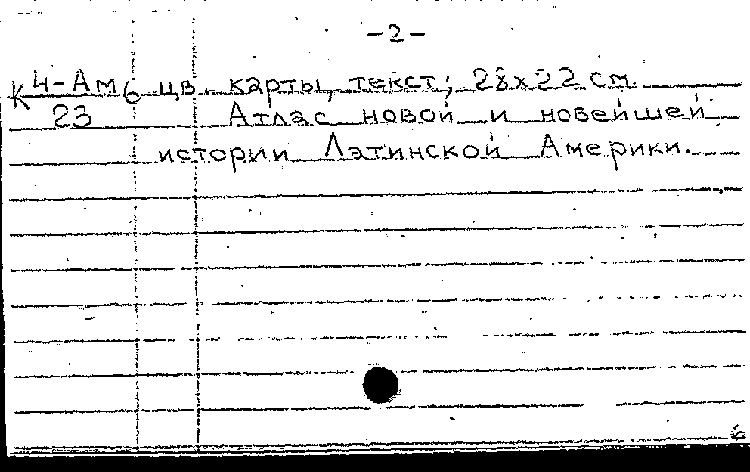 -2-
К 4-Ам6 цв. карты, текст; 28х22 см.
23 Атлас новой и новейшей
истории Латинской Америки.